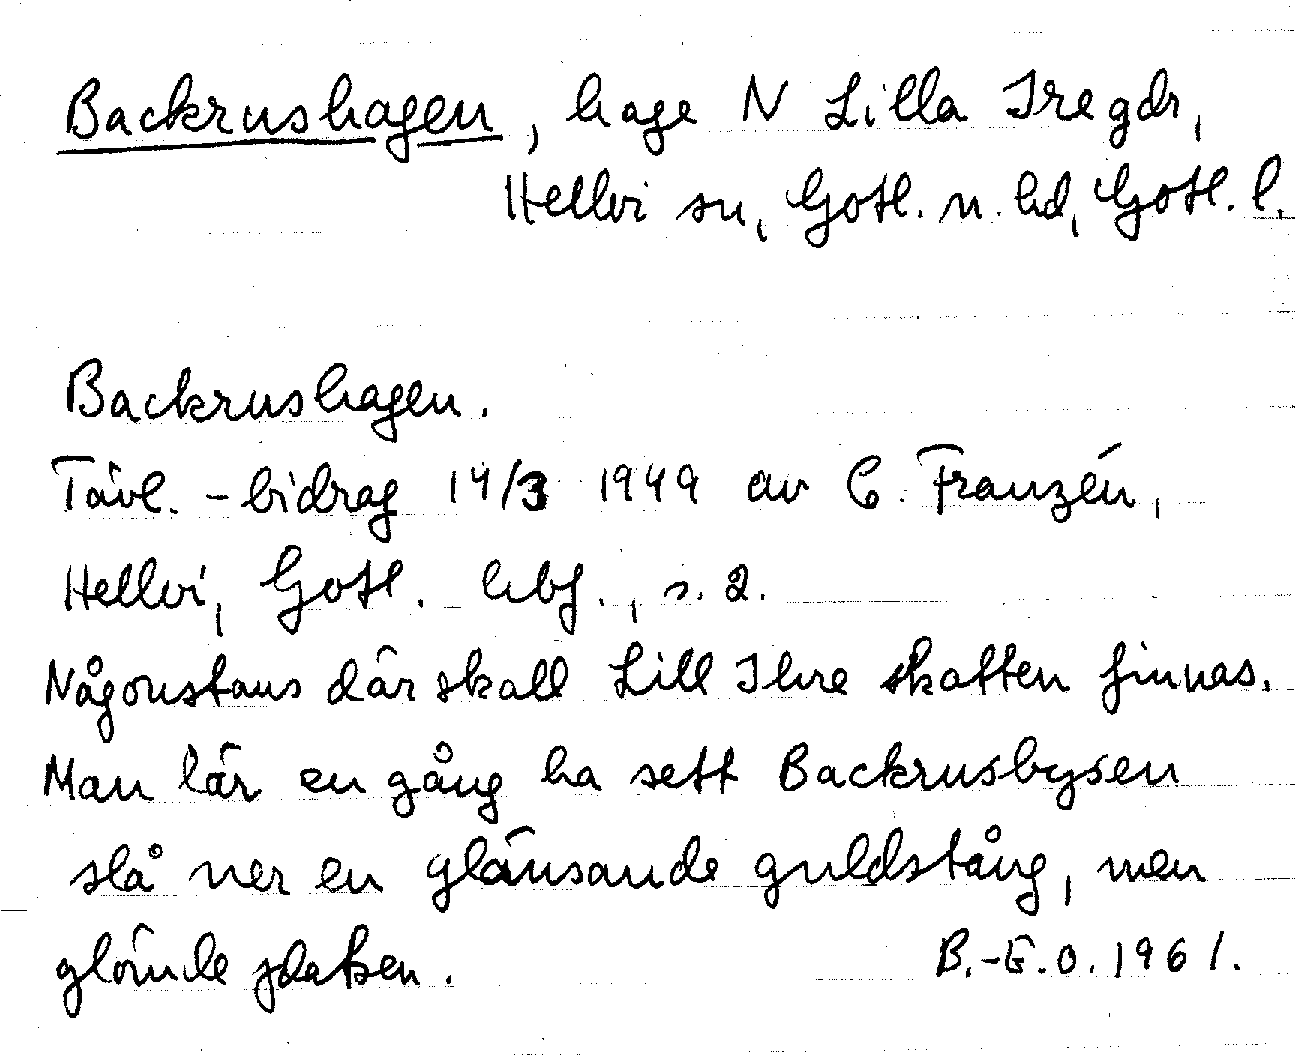 Backrushagen, hage N Lilla Ire gdr,
Hellvi sn, Gotl. n. hd, Gotl. l.
Backrushagen.
Tävl.-bidrag 14/3 1949 av C. Franzén,
Hellvi, Gotl. hbf., s. 2.
Någonstans där skall Lill Ihre skatten finnas.
Man lär en gång ha sett Backrusbysen
slå ner en glänsande guldstång, men
glömde platsen. B.-G.O. 1961.